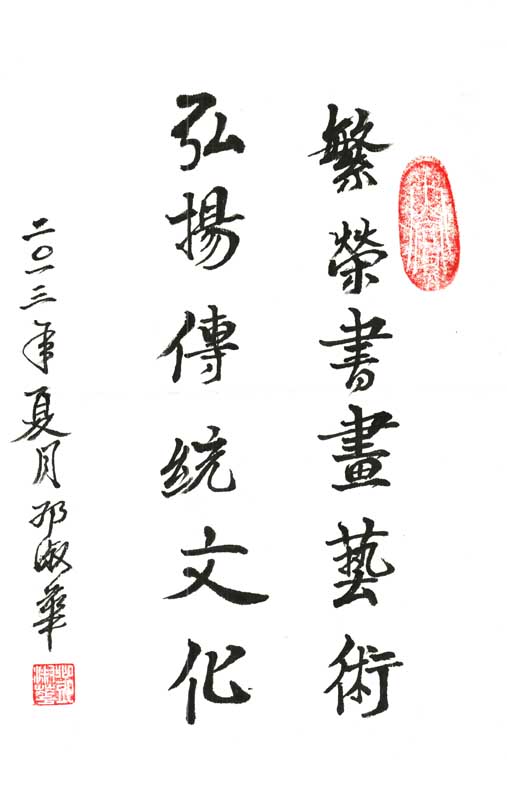 繁榮書畫藝術
弘揚傳統文化
二〇一三年夏月邓淑華